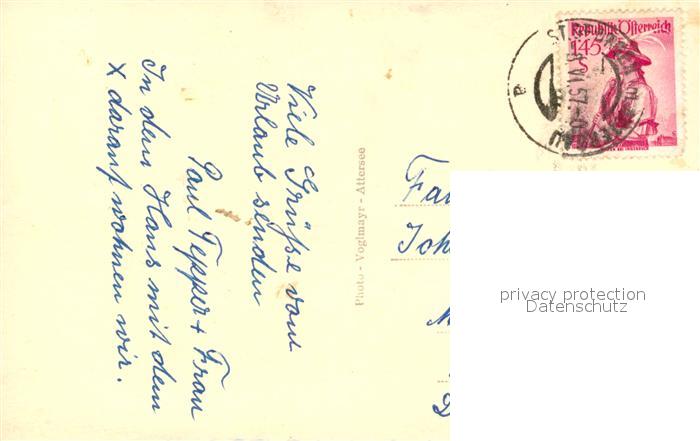 Viele Grüße vom
Urlaub senden
Paul Tepper + Frau
In dem Haus mit dem
X darauf wohnen wir.
Photo - Voglmayr - Attersee
Republik Österreich
1.45 S
VI.57.
privacy protection
Datenschutz